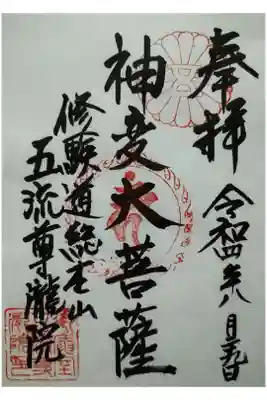 奉拝
令和四年八月日
神変大菩薩
修験道総本山
五流尊瀧院